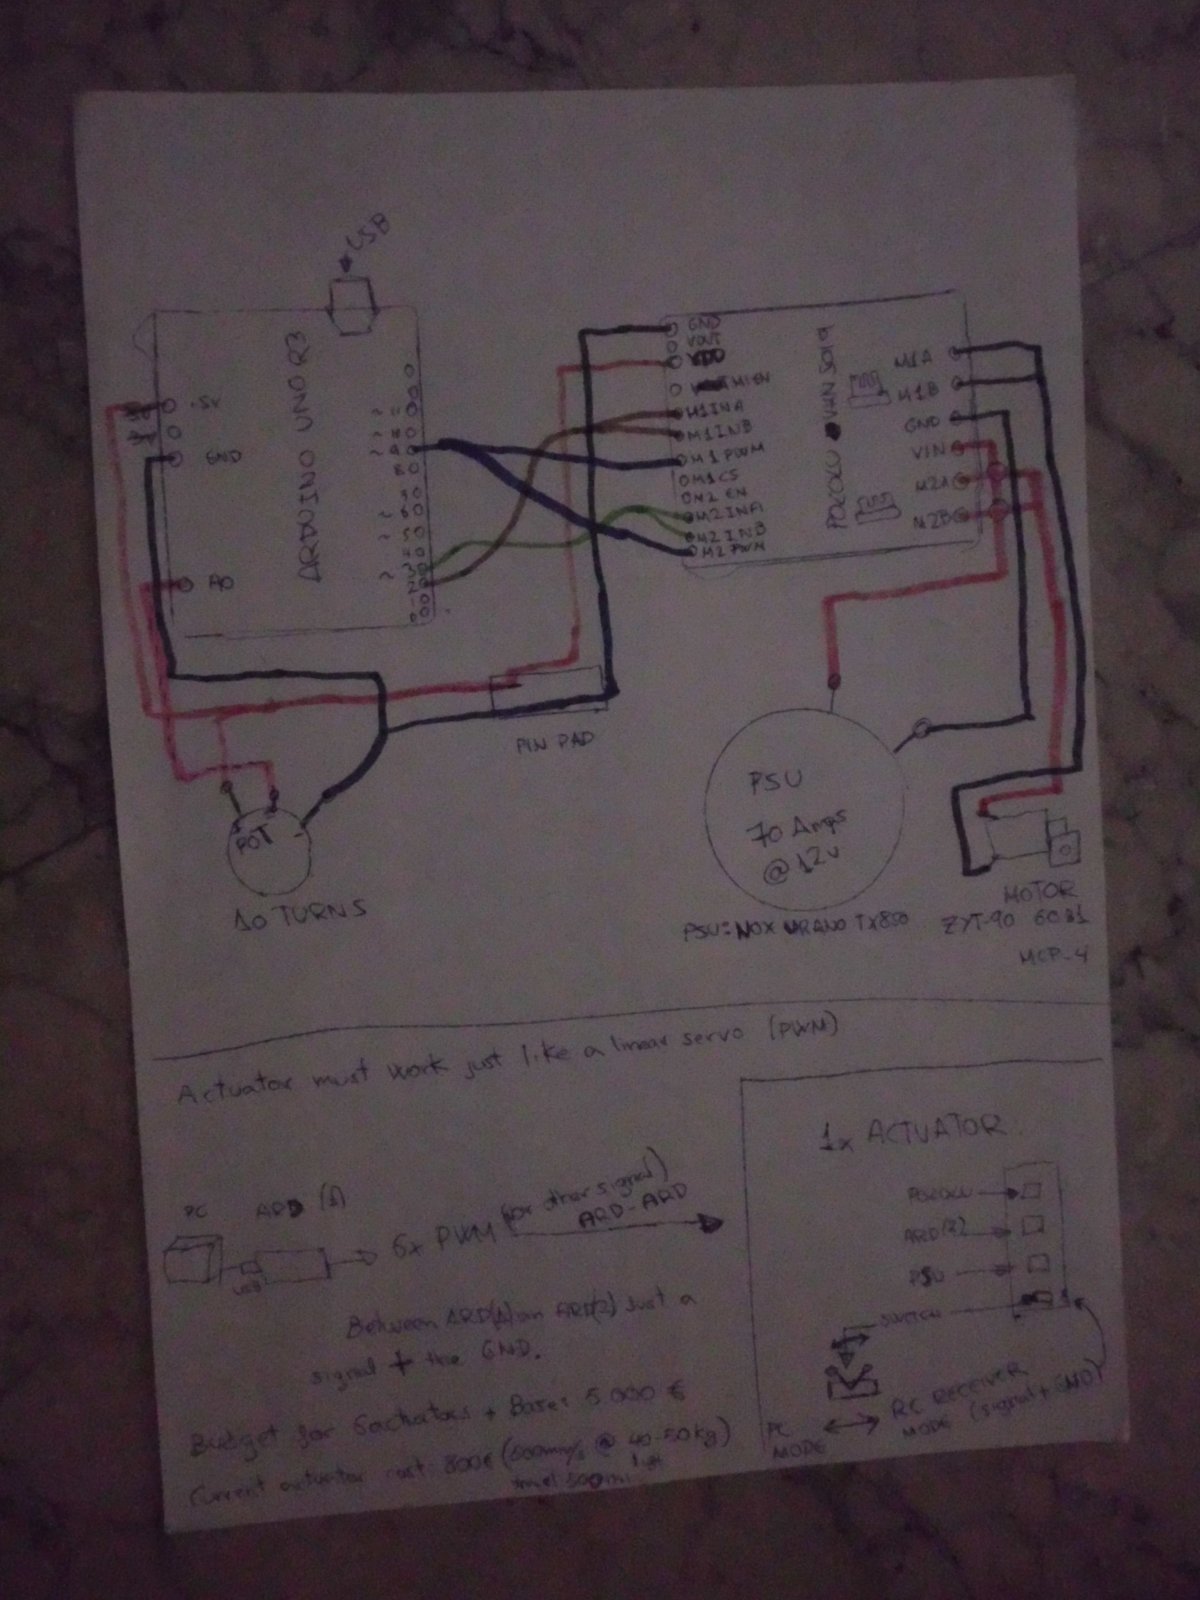 USB
ARDUINO UNO R3
5V
GND
A0
~ 11
~ 10
~ 9
8
7
~ 6
~ 5
4
~ 3
2
1
0
GND
VOUT
VDD
M1EN
M1INA
M1INB
M1PWM
M1CS
M2EN
M2INA
M2INB
M2PWM
POLOLU VNH5019
M1A
M1B
GND
VIN
M2A
M2B
PIN PAD
POT
10 TURNS
PSU
70 Amps
@ 12v
PSU: NOX URANO TX850
MOTOR
ZYT-90 60B1
MCP-4
Actuator must work just like a linear servo (PWM)
PC
ARD (1)
USB
6x PWM (or other signal)
ARD-ARD
Between ARD(1) an ARD(2) Just a
signal + the GND.
Budget for 6 actuators + Base: 5.000 €
Current actuator cost: 800€ (500mm/s @ 40-50kg)
travel 500mm
1x ACTUATOR
POLOLU
ARD(2)
PSU
SWITCH
PC
MODE
RC RECEIVER
MODE (signal + GND)